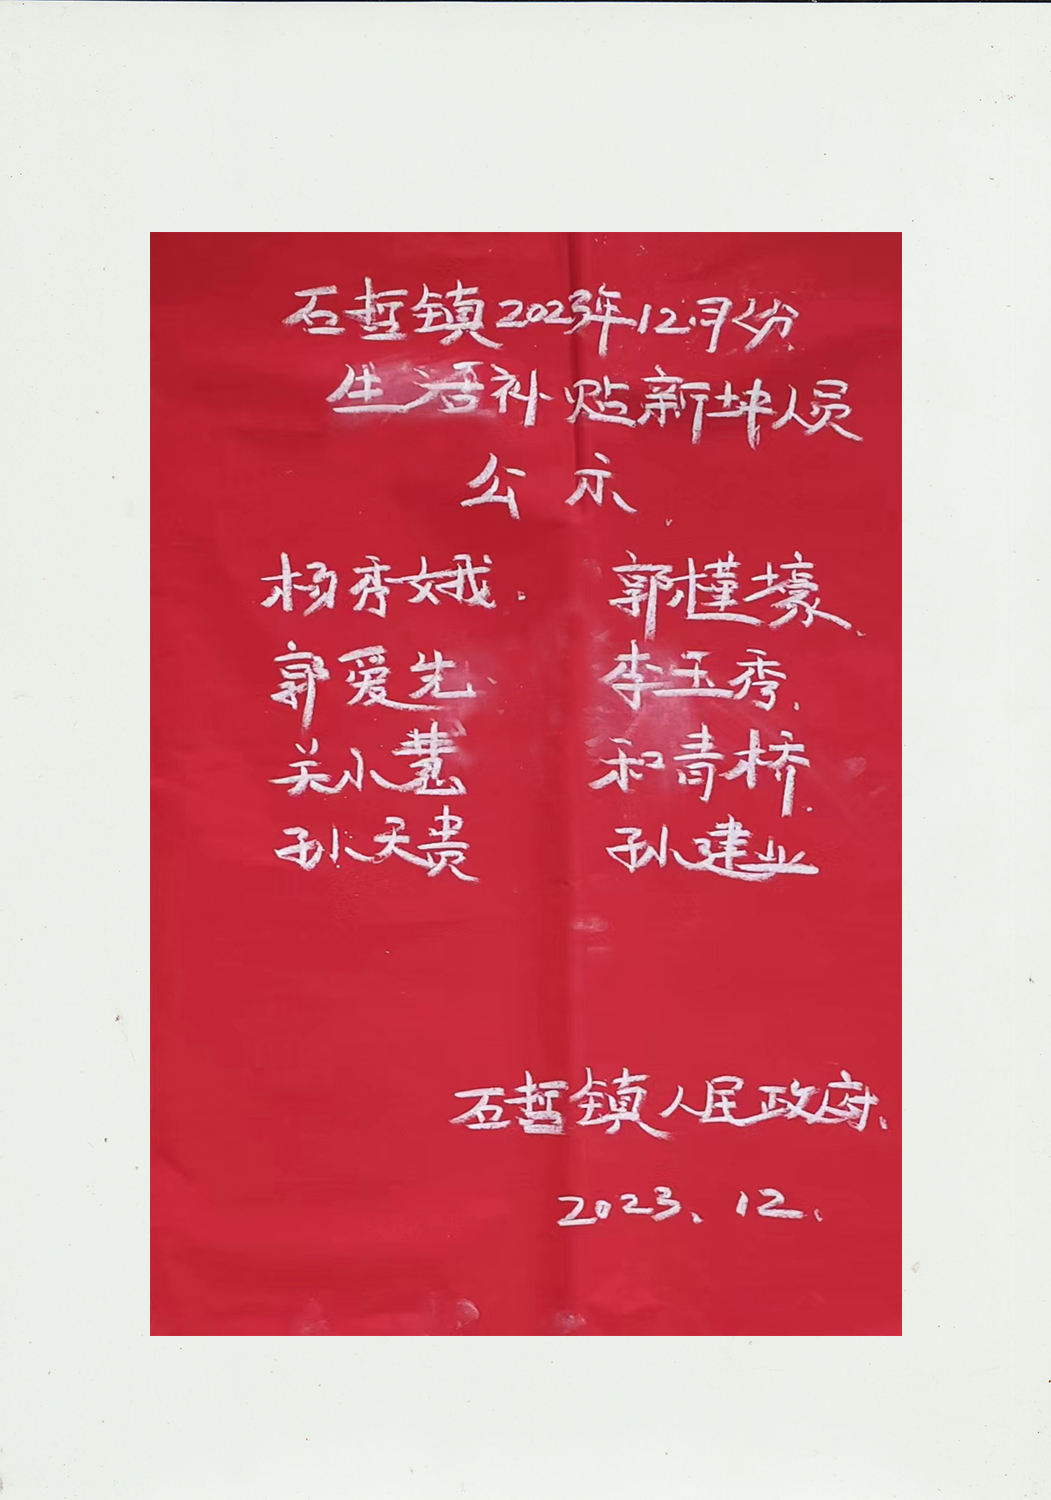 石哲镇2023年12月份
生活补贴新增人员
公示
杨秀娥. 郭槿壕.
郭爱先. 李玉秀.
关小慧 和青桥.
孙天贵 孙建业
石哲镇人民政府.
2023.12.